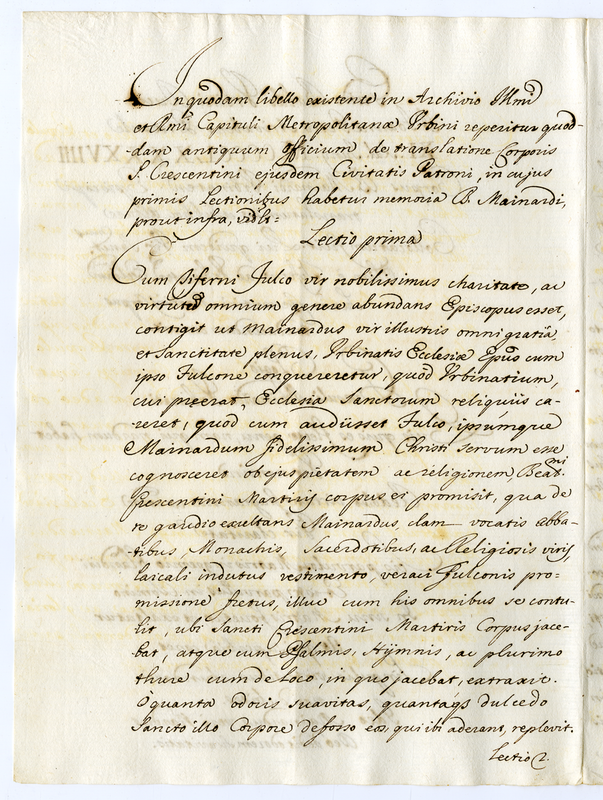 In quodam libello existente in Archivio Illmi
et Rmi Capituli Metropolitanæ Urbini reperitur quod-
dam antiquum officium de translatione Corporis
S. Crescentini ejusdem Civitatis Patroni, in cujus
primis Lectionibus habetur memoria B. Mainardi,
prout infra, vidlt=
Lectio prima
Cum Siferni Fulco vir nobilissimus charitate, ac
virtutũ omnium genere abundans Episcopus esset,
contigit ut Mainardus vir illustris omni gratiâ
et Sanctitate plenus, Urbinatis Ecclesiæ Epũs cum
ipso Fulcone conquereretur, quod Urbinatium,
cui preerat, Ecclesia Sanctorum reliquiis ca-
reret, quod cum audiisset Fulco, ipsumque
Mainardum fidelissimum Christi servum esse
cognosceret ob ejus pietatem ac religionem, Beatmi
Crescentini Martiris corpus ei promisit, qua de
re gaudio exultans Mainardus, clam vocatis abba-
tibus, Monachis, Sacerdotibus, ac Religiosis viris,
laicali indutus vestimento, veraci Fulconis pro-
missione fretus, illuc cum his omnibus se contu-
lit, ubi Sancti Crescentini Martiris Corpus jace-
bat, atque cum Psalmis, Hÿmnis, ac plurimo
thure eum de Loco, in quo jacebat, extraxit.
O quanta odoris suavitas, quantaqs dulcedo
Sancto illo Corpore defosso eos, qui ibi aderant, replevit.
Lectio 2.